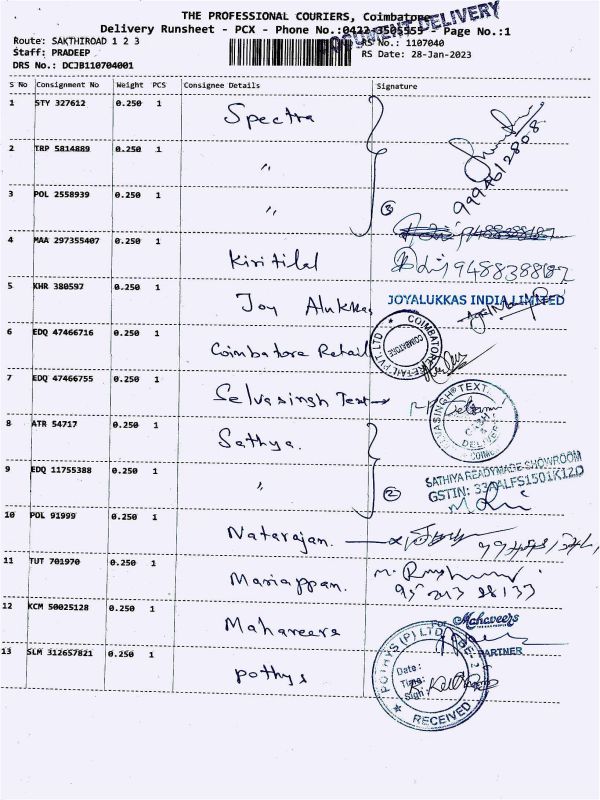 THE PROFESSIONAL COURIERS, Coimbatore
DOCUMENT DELIVERY
Delivery Runsheet - PCX - Phone No.:0422-3505555 Page No.:1
Route: SAKTHIROAD 1 2 3
RS No.: 1107040
Staff: PRADEEP
RS Date: 28-Jan-2023
DRS No.: DCJB110704001
S No Consignment No Weight PCS Consignee Details Signature
1 STY 327612 0.250 1 Spectra
9994612808
2 TRP 5814889 0.250 1 "
3 POL 2558939 0.250 1 " 3
4 MAA 297355407 0.250 1 Kiritilal 9488388187
5 KHR 380597 0.250 1 Joy Alukkas JOYALUKKAS INDIA LIMITED
6 EDQ 47466716 0.250 1 Coimbatore Retail
COIMBATORE RETAIL PVT LTD COIMBATORE
7 EDQ 47466755 0.250 1 Selvasingh Text
8 ATR 54717 0.250 1 Sathya.
9 EDQ 11755388 0.250 1 " 2
SATHIYA READYMADE SHOWROOM
GSTIN: 33AALFS1501K1ZD
10 POL 91999 0.250 1 Natarajan.
11 TUT 701970 0.250 1 Mariappan.
12 KCM 50025128 0.250 1 Mahaveers
For Mahaveers
PARTNER
13 SLM 312657821 0.250 1 Pothys
POTHYS (P) LTD
Date:
Time:
Sign:
RECEIVED